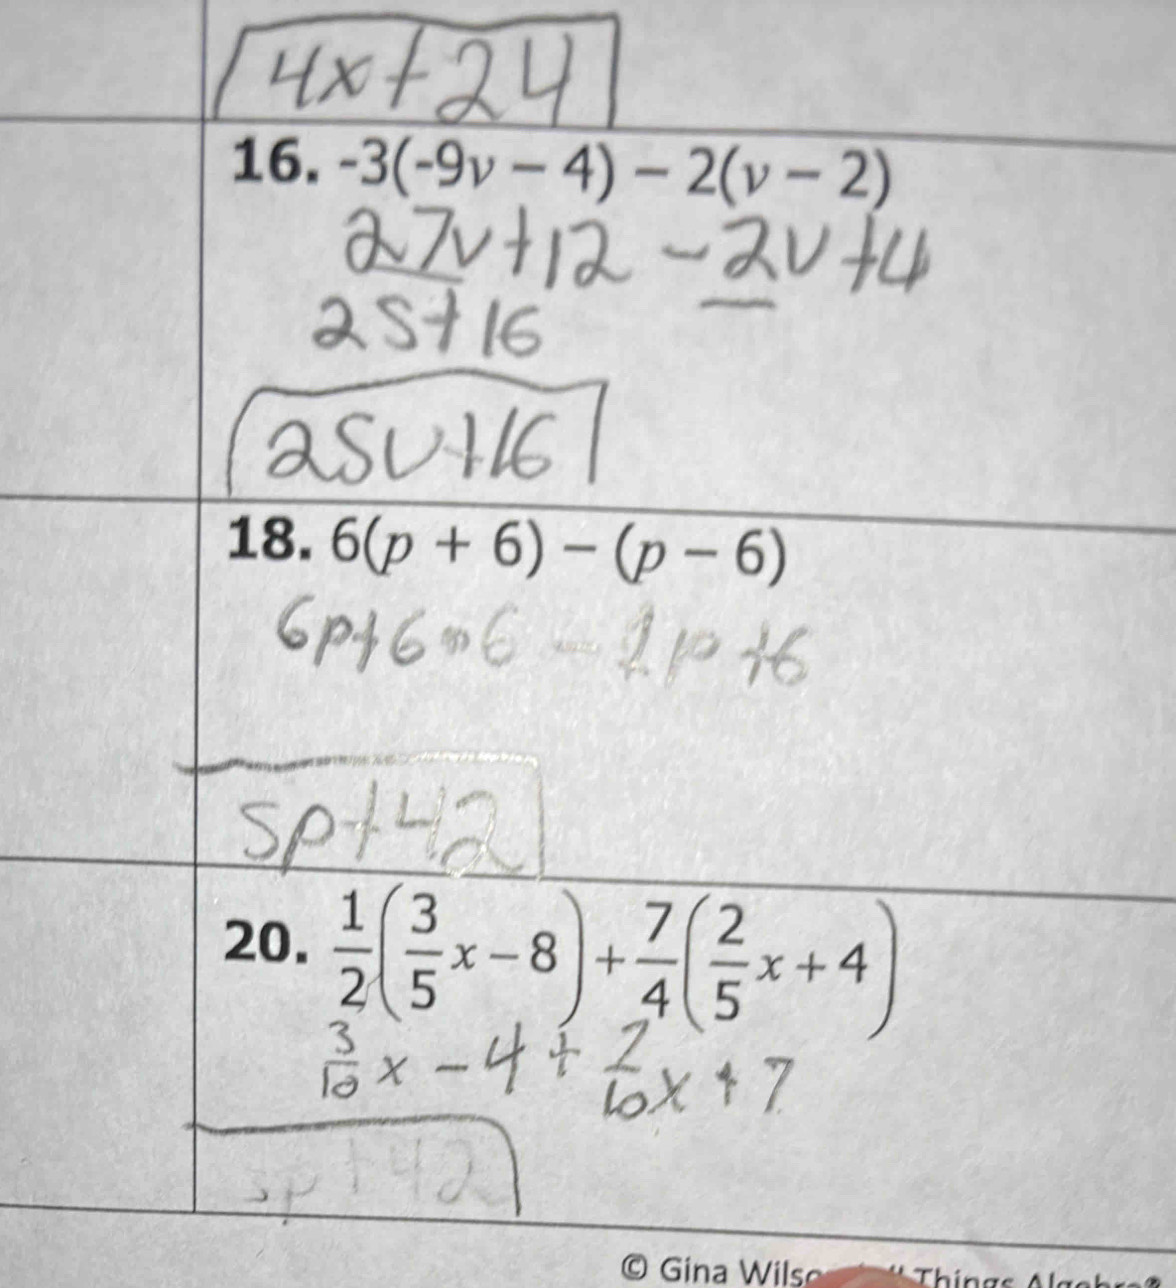 4x+24
16. -3(-9v – 4) – 2(v – 2)
27v+12 -2v+4
25+16
25v+16
18. 6(p + 6) – (p – 6)
6p+6·6 - 1p +6
5p+42
20. 1/2(3/5x – 8) + 7/4(2/5x + 4)
3/10x - 4 + 7/10x + 7
5p+42
© Gina Wilson Things Algebra